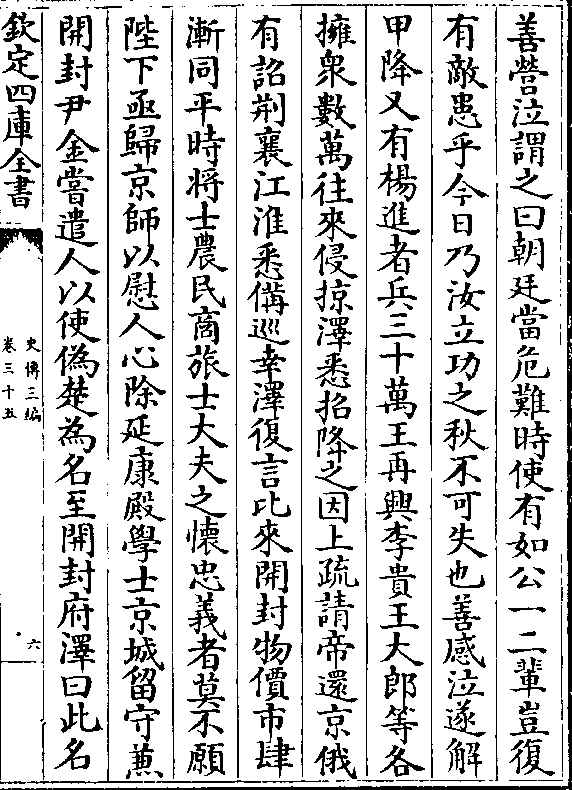 善營泣謂之曰朝廷當危難時使有如公一二輩豈復
有敵患乎今日乃汝立功之秋不可失也善感泣遂解
甲降又有楊進者兵三十萬王再興李貴王大郎等各
擁衆數萬往來侵掠澤悉招降之因上疏請帝還京俄
有詔荆襄江淮悉備巡幸澤復言比來開封物價市肆
漸同平時將士農民商旅士大夫之懷忠義者莫不願
陛下亟歸京師以慰人心除延康殿學士京城留守兼
開封尹金嘗遣人以使偽楚為名至開封府澤曰此名
欽定四庫全書
史傳三編
卷三十五
六